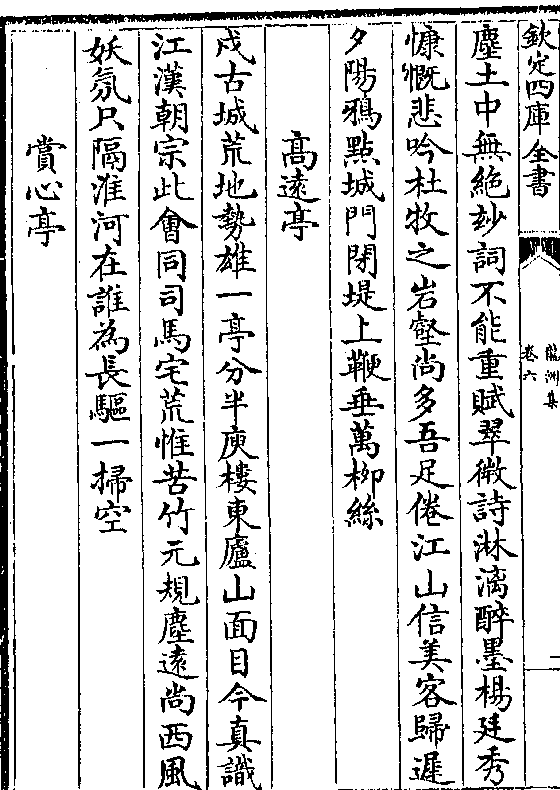 欽定四庫全書
龍洲集
卷六
塵土中無絶妙詞不能重賦翠微詩淋漓醉墨楊廷秀
慷慨悲吟杜牧之岩壑尚多吾足倦江山信美客歸遲
夕陽鴉點城門閉堤上鞭垂萬柳絲
高遠亭
戍古城荒地勢雄一亭分半庾樓東廬山面目今真識
江漢朝宗此會同司馬宅荒惟苦竹元規塵遠尚西風
妖氛只隔淮河在誰為長驅一掃空
賞心亭